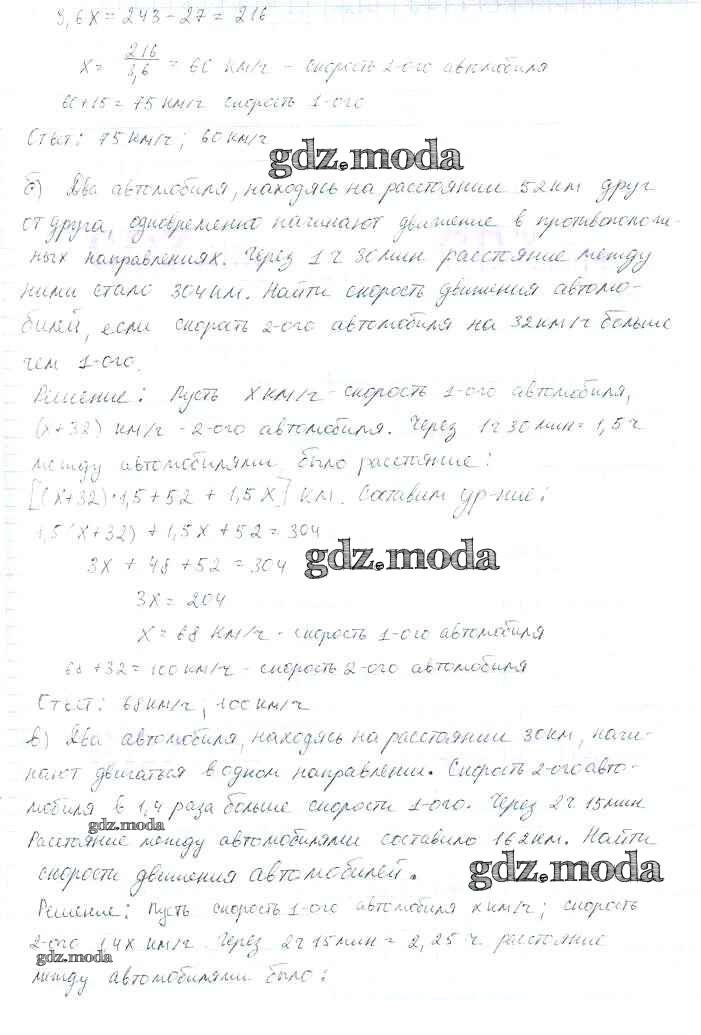 3,6x = 243 - 27 = 216
x = 216/3,6 = 60 км/ч - скорость 2-ого автомобиля
60+15 = 75 км/ч скорость 1-ого
Ответ: 75 км/ч; 60 км/ч
gdz.moda
б) Два автомобиля, находясь на расстоянии 52 км друг
от друга, одновременно начинают движение в противополож-
ных направлениях. Через 1 ч 30 мин расстояние между
ними стало 304 км. Найти скорость движения автомо-
билей, если скорость 2-ого автомобиля на 32 км/ч больше
чем 1-ого.
Решение: Пусть x км/ч - скорость 1-ого автомобиля,
(x+32) км/ч - 2-ого автомобиля. Через 1ч 30 мин = 1,5 ч
между автомобилями было расстояние:
[(x+32)·1,5+52 + 1,5x] км. Составим ур-ние:
1,5(x+32) + 1,5x + 52 = 304
gdz.moda
3x + 48 + 52 = 304
3x = 204
x = 68 км/ч - скорость 1-ого автомобиля
68 + 32 = 100 км/ч - скорость 2-ого автомобиля
Ответ: 68 км/ч, 100 км/ч
в) Два автомобиля, находясь на расстоянии 30 км, начи-
нают двигаться в одном направлении. Скорость 2-ого авто-
мобиля в 1,4 раза больше скорости 1-ого. Через 2ч 15 мин
gdz.moda
Расстояние между автомобилями составило 162 км. Найти
скорости движения автомобилей.
gdz.moda
Решение: Пусть скорость 1-ого автомобиля x км/ч; скорость
2-ого 1,4x км/ч. Через 2ч 15 мин = 2,25 ч. расстояние
gdz.moda
между автомобилями было: